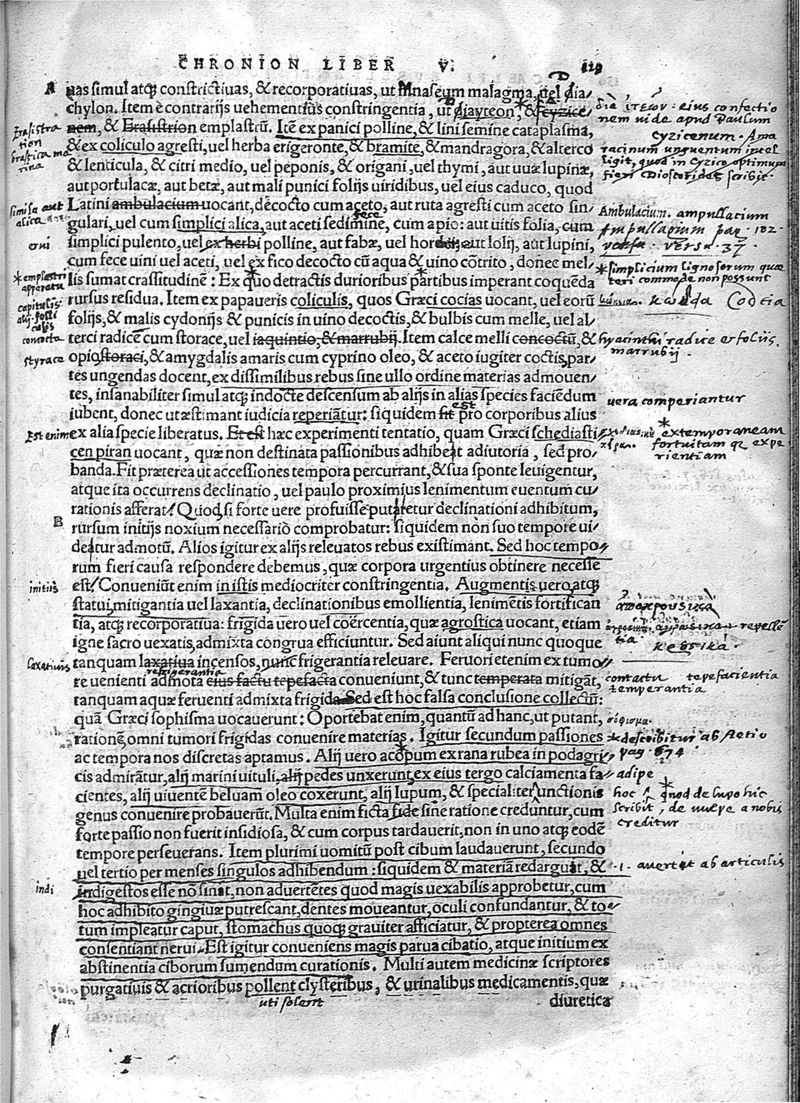 CHRONION LIBER V. 119
A uas simul atq; constrictiuas, & recorporatiuas, ut Mnaseum malagma, uel dia/
chylon. Item è contrarijs uehementiùs constringentia, ut diayteon, & fyzice
nem, & Erasistrion emplastrũ. Itẽ ex panici polline, & lini semine cataplasma,
& ex coliculo agresti, uel herba erigeronte, & bramite, & mandragora, & alterco
& lenticula, & citri medio, uel peponis, & origani, uel thymi, aut uuæ lupinæ,
aut portulacæ, aut betæ, aut mali punici folijs uiridibus, uel eius caduco, quod
Latini ambulacium uocant, decocto cum aceto, aut ruta agresti cum aceto sin/
gulari, uel cum simplici alica, aut aceti sedimine, cum apio: aut uitis folia, cum
simplici pulento, uel ex herbi polline, aut fabæ, uel hordei, aut lolij, aut lupini,
cum fece uini uel aceti, uel ex fico decocto cũ aqua & uino cõtrito, donec mel/
lis sumat crassitudinẽ: Ex quo detractis durioribus partibus imperant coquẽda
rursus residua. Item ex papaueris coliculis, quos Græci cocias uocant, uel eorũ
folijs, & malis cydonijs, & punicis in uino decoctis, & bulbis cum melle, uel al/
terci radicẽ cum storace, uel iaquintio, & marrubij. Item calce melli concoctũ, &
opio storaci, & amygdalis amaris cum cyprino oleo, & aceto iugiter coctis, par/
tes ungendas docent, ex dissimilibus rebus sine ullo ordine materias admouen/
tes, insanabiliter simul atq; indocte descensum ab alijs in alias species faciẽdum
iubent, donec ut æstimant iudicia reperiãtur: siquidem fit pro corporibus alius
ex alia specie liberatus. Et est hæc experimenti tentatio, quam Græci schediasti
cen piran uocant, quæ non destinata passionibus adhibeat adiutoria, sed pro/
banda. Fit præterea ut accessiones tempora percurrant, & sua sponte leuigentur,
atque ita occurrens declinatio, uel paulo proximius lenimentum euentum cu/
rationis afferat. Quod si forte uere profuisse putaretur declinationi adhibitum,
B rursum initijs noxium necessariò comprobatur: siquidem non suo tempore ui/
deatur admotũ. Alios igitur ex alijs releuatos rebus existimant. Sed hoc tempo/
rum fieri causa respondere debemus, quæ corpora urgentius obtinere necesse
est. Conueniũt enim in istis mediocriter constringentia. Augmentis uero atq;
statui mitigantia uel laxantia, declinationibus emollientia, lenimẽtis fortifican
tia, atq; recorporatiua: frigida uero uel coërcentia, quæ agrostica uocant, etiam
igne sacro uexatis, admixta congrua efficiuntur. Sed aiunt aliqui nunc quoque
tanquam laxatiua incensos, nunc frigerantia releuare. Feruori etenim ex tumo/
re uenienti admota eius factu tepefacta conueniunt, & tunc temperata mitigãt,
tanquam aquæ feruenti admixta frigida. Sed est hoc falsa conclusione collectũ:
quã Græci sophisma uocauerunt: Oportebat enim, quantũ ad hanc, ut putant,
rationẽ, omni tumori frigidas conuenire materias. Igitur secundum passiones
ac tempora nos discretas aptamus. Alij uero acopum ex rana rubea in podagri/
cis admirãtur, alij marini uituli, alij pedes unxerunt, ex eius tergo calciamenta fa/
cientes, alij uiuentẽ beluam oleo coxerunt, alij lupum, & specialiter functionis
genus conuenire probauerũt. Multa enim ficta fide sine ratione creduntur, cum
forte passio non fuerit insidiosa, & cum corpus tardauerit, non in uno atq; eodẽ
tempore perseuerans. Item plurimi uomitũ post cibum laudauerunt, secundo
uel tertio per menses singulos adhibendum: siquidem & materiã redarguat, &
indigestos esse nõ sinat, non aduertẽtes quod magis uexabilis approbetur, cum
hoc adhibito gingiuæ putrescant, dentes moueantur, oculi confundantur, & to/
tum impleatur caput, stomachus quoq; grauiter afficiatur, & propterea omnes
consentiant nerui. Est igitur conueniens magis parua cibatio, atque initium ex
abstinentia ciborum sumendum curationis. Multi autem medicinæ scriptores
purgatiuis & acrioribus pollent clysteribus, & urinalibus medicamentis, quæ
uti solent
diuretica
eius confectio
nem uide apud Paulum
Cyzicenum. Ama
racinum unguentum intel
ligit, quod in Cyzico optimum
fieri Dioscorides scribit.
Ambulacium. ampullacium
* simplicium lignosorum quæ
teri commode non possunt
Codeia
hyacinthi radice et folijs
marrubij
uera comperiantur
* extemporaneam
fortuitam q; expe
rientiam
contactu tepefacientia
temperantia
* describitur ab Aetio
pag. 674
adipe
hoc quod de lupo hic
scribit, de uulpe a nobis
creditur
.i. auertet ab articulis
Erasistra
tion
* emplastri
apparatu
concocta
styrace
Est enim
initiis
laxatiuis
refrigerantia
indi